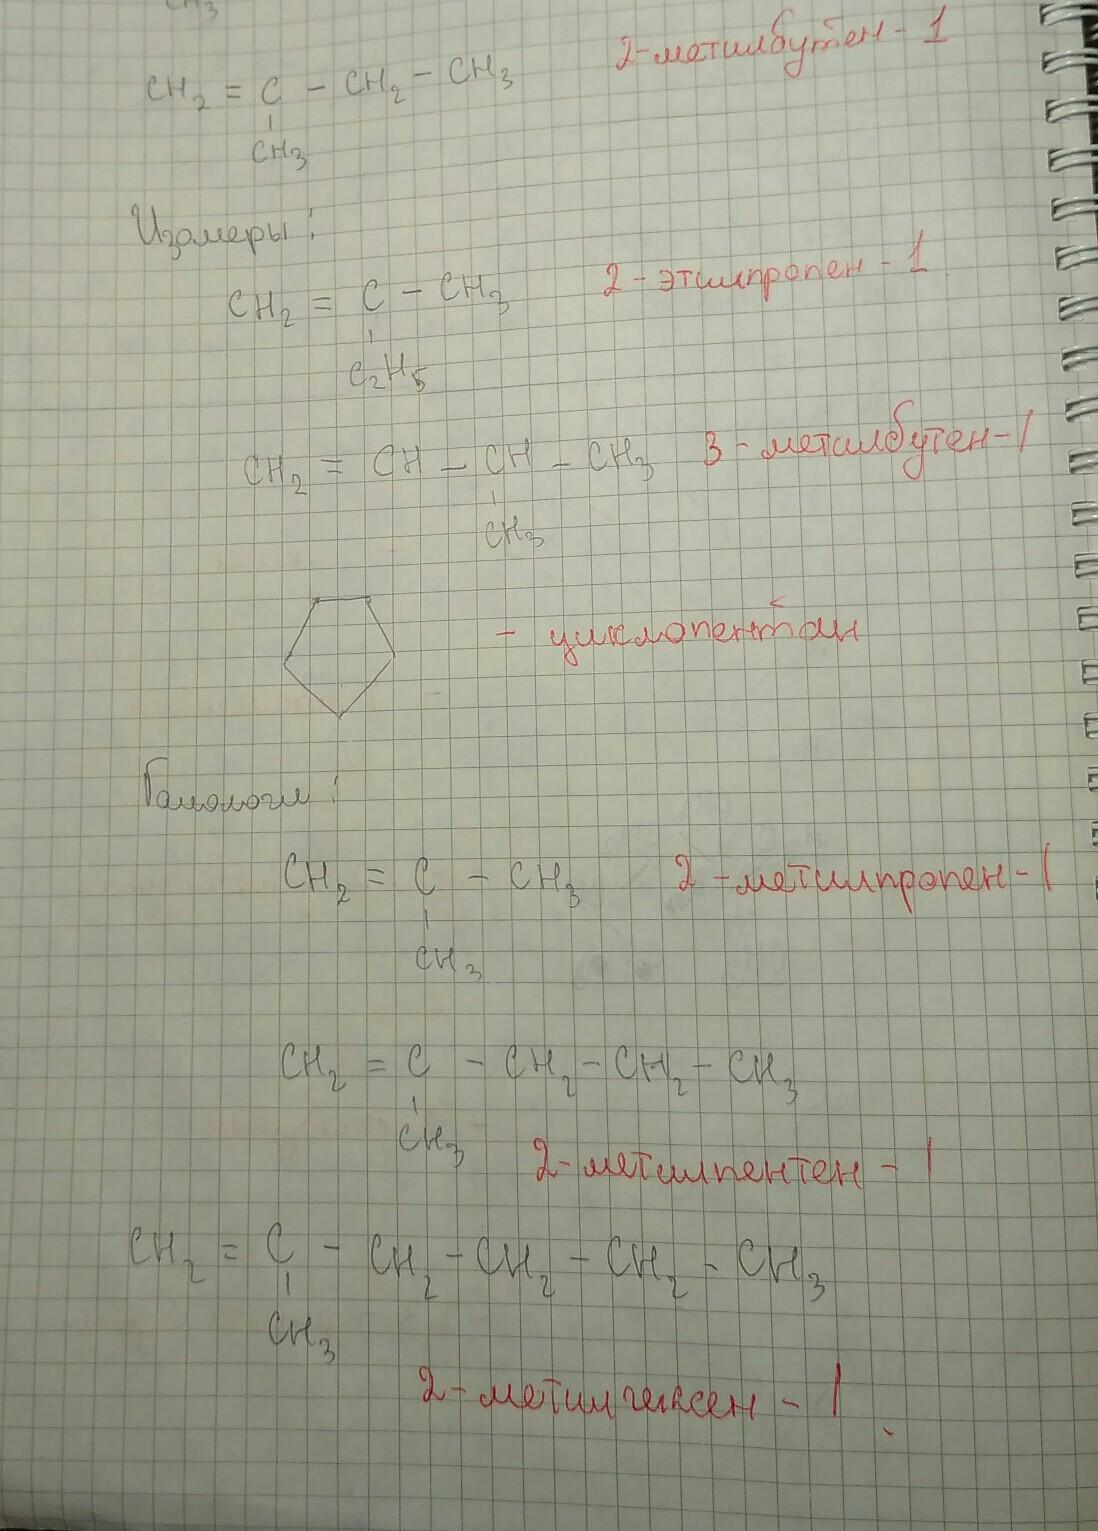 CH3
CH2 = C - CH2 - CH3 2-метилбутен-1
CH3
Изомеры:
CH2 = C - CH3 2-этилпропен-1
C2H5
CH2 = CH - CH - CH3 3-метилбутен-1
CH3
- циклопентан
Гомологи:
CH2 = C - CH3 2-метилпропен-1
CH3
CH2 = C - CH2 - CH2 - CH3
CH3
2-метилпентен-1
CH2 = C - CH2 - CH2 - CH2 - CH3
CH3
2-метилгексен-1